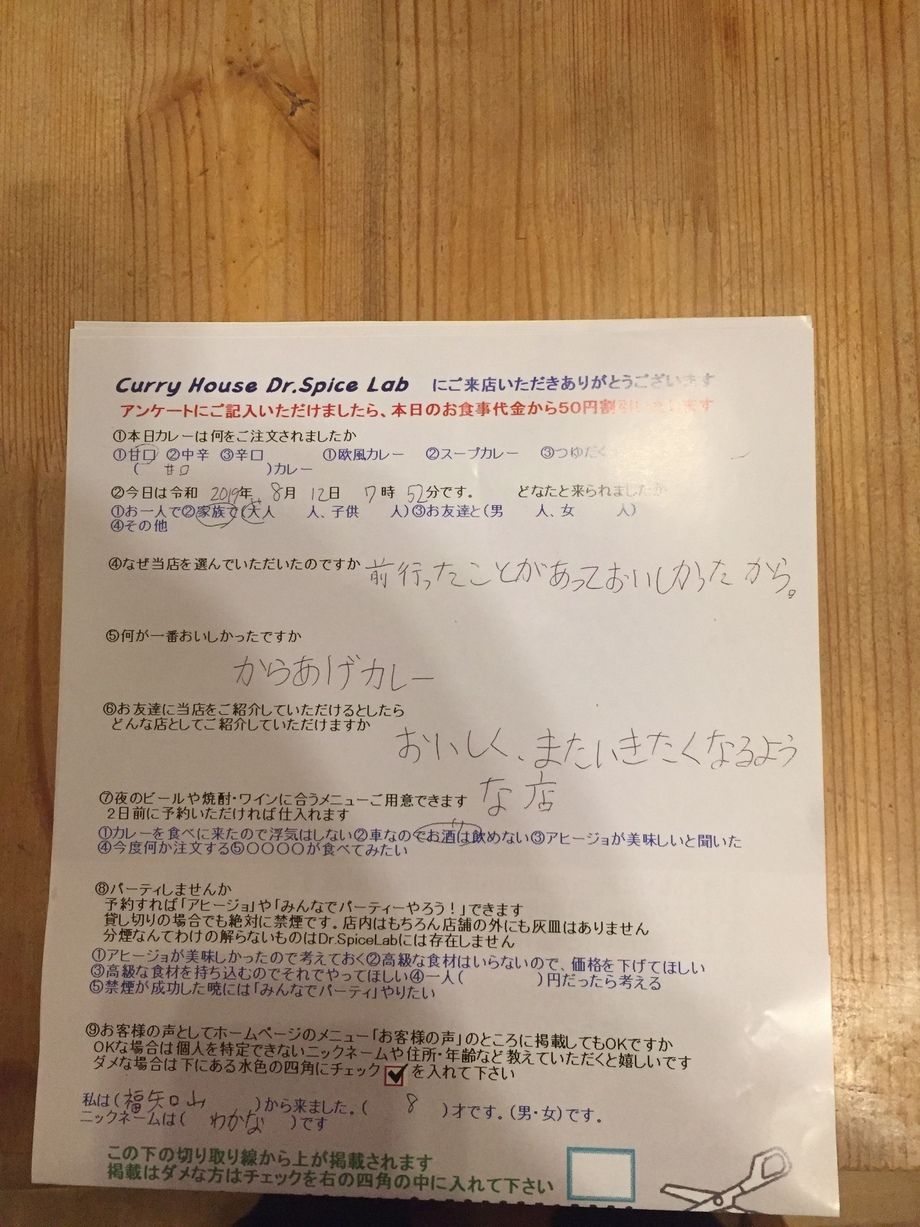 Curry House Dr.Spice Lab にご来店いただきありがとうございます
アンケートにご記入いただけましたら、本日のお食事代金から50円割引いたします
①本日カレーは何をご注文されましたか
①甘口 ②中辛 ③辛口 ①欧風カレー ②スープカレー ③つゆだく
( 甘口 )カレー
②今日は令和 2019年 8月 12日 7時 52分です。 どなたと来られましたか
①お一人で②家族で(大人 人、子供 人)③お友達と(男 人、女 人)
④その他
④なぜ当店を選んでいただいたのですか 前行ったことがあっておいしかったから。
⑤何が一番おいしかったですか
からあげカレー
⑥お友達に当店をご紹介していただけるとしたら
どんな店としてご紹介していただけますか
おいしく、またいきたくなるよう
な店
⑦夜のビールや焼酎・ワインに合うメニューご用意できます
2日前に予約いただければ仕入れます
①カレーを食べに来たので浮気はしない②車なのでお酒は飲めない③アヒージョが美味しいと聞いた
④今度何か注文する⑤〇〇〇〇が食べてみたい
⑧パーティしませんか
予約すれば「アヒージョ」や「みんなでパーティーやろう！」できます
貸し切りの場合でも絶対に禁煙です。店内はもちろん店舗の外にも灰皿はありません
分煙なんてわけの解らないものはDr.SpiceLabには存在しません
①アヒージョが美味しかったので考えておく②高級な食材はいらないので、価格を下げてほしい
③高級な食材を持ち込むのでそれでやってほしい④一人( )円だったら考える
⑤禁煙が成功した暁には「みんなでパーティ」やりたい
⑨お客様の声としてホームページのメニュー「お客様の声」のところに掲載してもOKですか
OKな場合は個人を特定できないニックネームや住所・年齢など教えていただくと嬉しいです
ダメな場合は下にある水色の四角にチェック☑を入れて下さい
私は( 福知山 )から来ました。( 8 )才です。(男・女)です。
ニックネームは( わかな )です
この下の切り取り線から上が掲載されます
掲載はダメな方はチェックを右の四角の中に入れて下さい